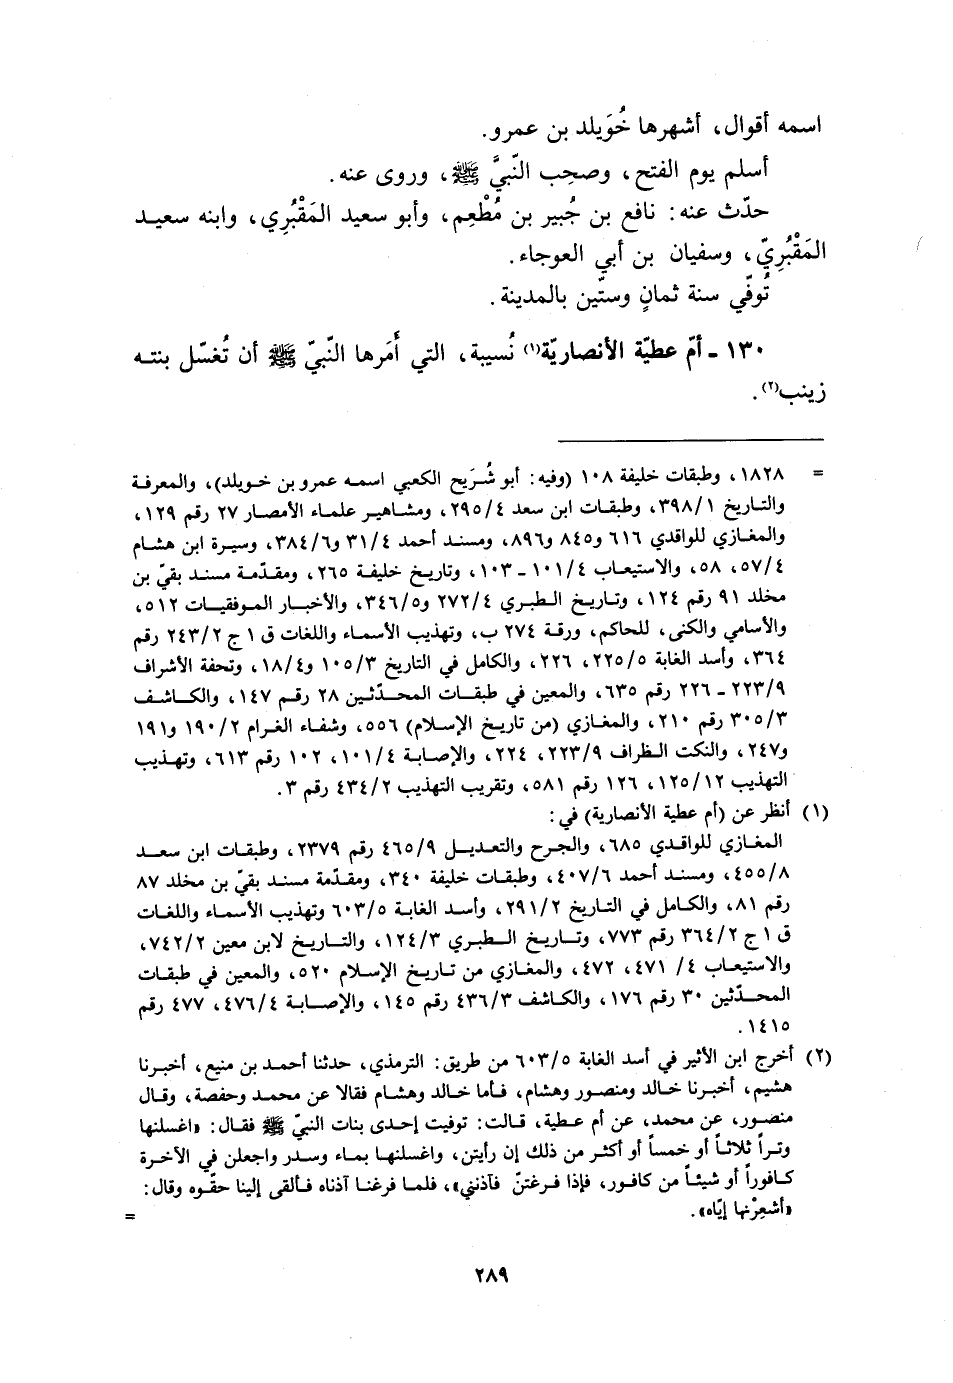 اسمه أقوال، أشهرها خُوَيلد بن عمرو.
أسلم يوم الفتح، وصحِب النّبيَّ ﷺ، وروى عنه.
حدّث عنه: نافع بن جُبير بن مُطْعِم، وأبو سعيد المَقْبُرِي، وابنه سعيد
المَقْبُرِيّ، وسفيان بن أبي العوجاء.
تُوفّي سنة ثمانٍ وستّين بالمدينة.
١٣٠ ـ أمّ عطيّة الأنصاريّة(١) نُسيبة، التي أَمَرها النّبيّ ﷺ أن تُغسّل بنته
زينب(٢).
= ١٨٢٨، وطبقات خليفة ١٠٨ (وفيه: أبو شُرَيح الكعبي اسمه عمرو بن خويلد)، والمعرفة
والتاريخ ٣٩٨/١، وطبقات ابن سعد ٢٩٥/٤، ومشاهير علماء الأمصار ٢٧ رقم ١٢٩،
والمغازي للواقدي ٦١٦ و٨٤٥ و٨٩٦، ومسند أحمد ٣١/٤ و٣٨٤/٦، وسيرة ابن هشام
٥٧/٤، ٥٨، والاستيعاب ١٠١/٤ ـ ١٠٣، وتاريخ خليفة ٢٦٥، ومقدّمة مسند بقيّ بن
مخلد ٩١ رقم ١٢٤، وتاريخ الطبري ٢٧٢/٤ و٣٤٦/٥، والأخبار الموفقيات ٥١٢،
والأسامي والكنى، للحاكم، ورقة ٢٧٤ ب، وتهذيب الأسماء واللغات ق ١ ج ٢٤٣/٢ رقم
٣٦٤، وأسد الغابة ٢٢٥/٥، ٢٢٦، والكامل في التاريخ ١٠٥/٣ و١٨/٤، وتحفة الأشراف
٢٢٣/٩ ـ ٢٢٦ رقم ٦٣٥، والمعين في طبقات المحدّثين ٢٨ رقم ١٤٧، والكاشف
٣٠٥/٣ رقم ٢١٠، والمغازي (من تاريخ الإسلام) ٥٥٦، وشفاء الغرام ١٩٠/٢ و١٩١
و٢٤٧، والنكت الظراف ٢٢٣/٩، ٢٢٤، والإصابة ١٠١/٤، ١٠٢ رقم ٦١٣، وتهذيب
التهذيب ١٢٥/١٢، ١٢٦ رقم ٥٨١، وتقريب التهذيب ٤٣٤/٢ رقم ٣.
(١) أنظر عن (أم عطية الأنصارية) في:
المغازي للواقدي ٦٨٥، والجرح والتعديل ٤٦٥/٩ رقم ٢٣٧٩، وطبقات ابن سعد
٤٥٥/٨، ومسند أحمد ٤٠٧/٦، وطبقات خليفة ٣٤٠، ومقدّمة مسند بقيّ بن مخلد ٨٧
رقم ٨١، والكامل في التاريخ ٢٩١/٢، وأسد الغابة ٦٠٣/٥ وتهذيب الأسماء واللغات
ق ١ ج ٣٦٤/٢ رقم ٧٧٣، وتاريخ الطبري ١٢٤/٣، والتاريخ لابن معين ٧٤٢/٢،
والاستيعاب ٤/ ٤٧١، ٤٧٢، والمغازي من تاريخ الإسلام ٥٢٠، والمعين في طبقات
المحدّثين ٣٠ رقم ١٧٦، والكاشف ٤٣٦/٣ رقم ١٤٥، والإصابة ٤٧٦/٤، ٤٧٧ رقم
١٤١٥.
(٢) أخرج ابن الأثير في أسد الغابة ٦٠٣/٥ من طريق: الترمذي، حدثنا أحمد بن منيع، أخبرنا
هشيم، أخبرنا خالد ومنصور وهشام، فأما خالد وهشام فقالا عن محمد وحفصة، وقال
منصور، عن محمد، عن أم عطية، قالت: توفيت إحدى بنات النبيّ ﷺ فقال: «اغسلنها
وتراً ثلاثاً أو خمساً أو أكثر من ذلك إن رأيتن، واغسلنها بماء وسدر واجعلن في الآخرة
كافوراً أو شيئاً من كافور، فإذا فرغتنّ فآذنني»، فلما فرغنا آذناه فألقى إلينا حقّوه وقال:
«أشعِرْنها إيّاه». =
٢٨٩